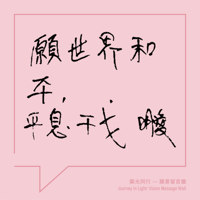 願世界和
平,
平息干戈
與光同行 — 願景留言牆
Journey in Light: Vision Message Wall